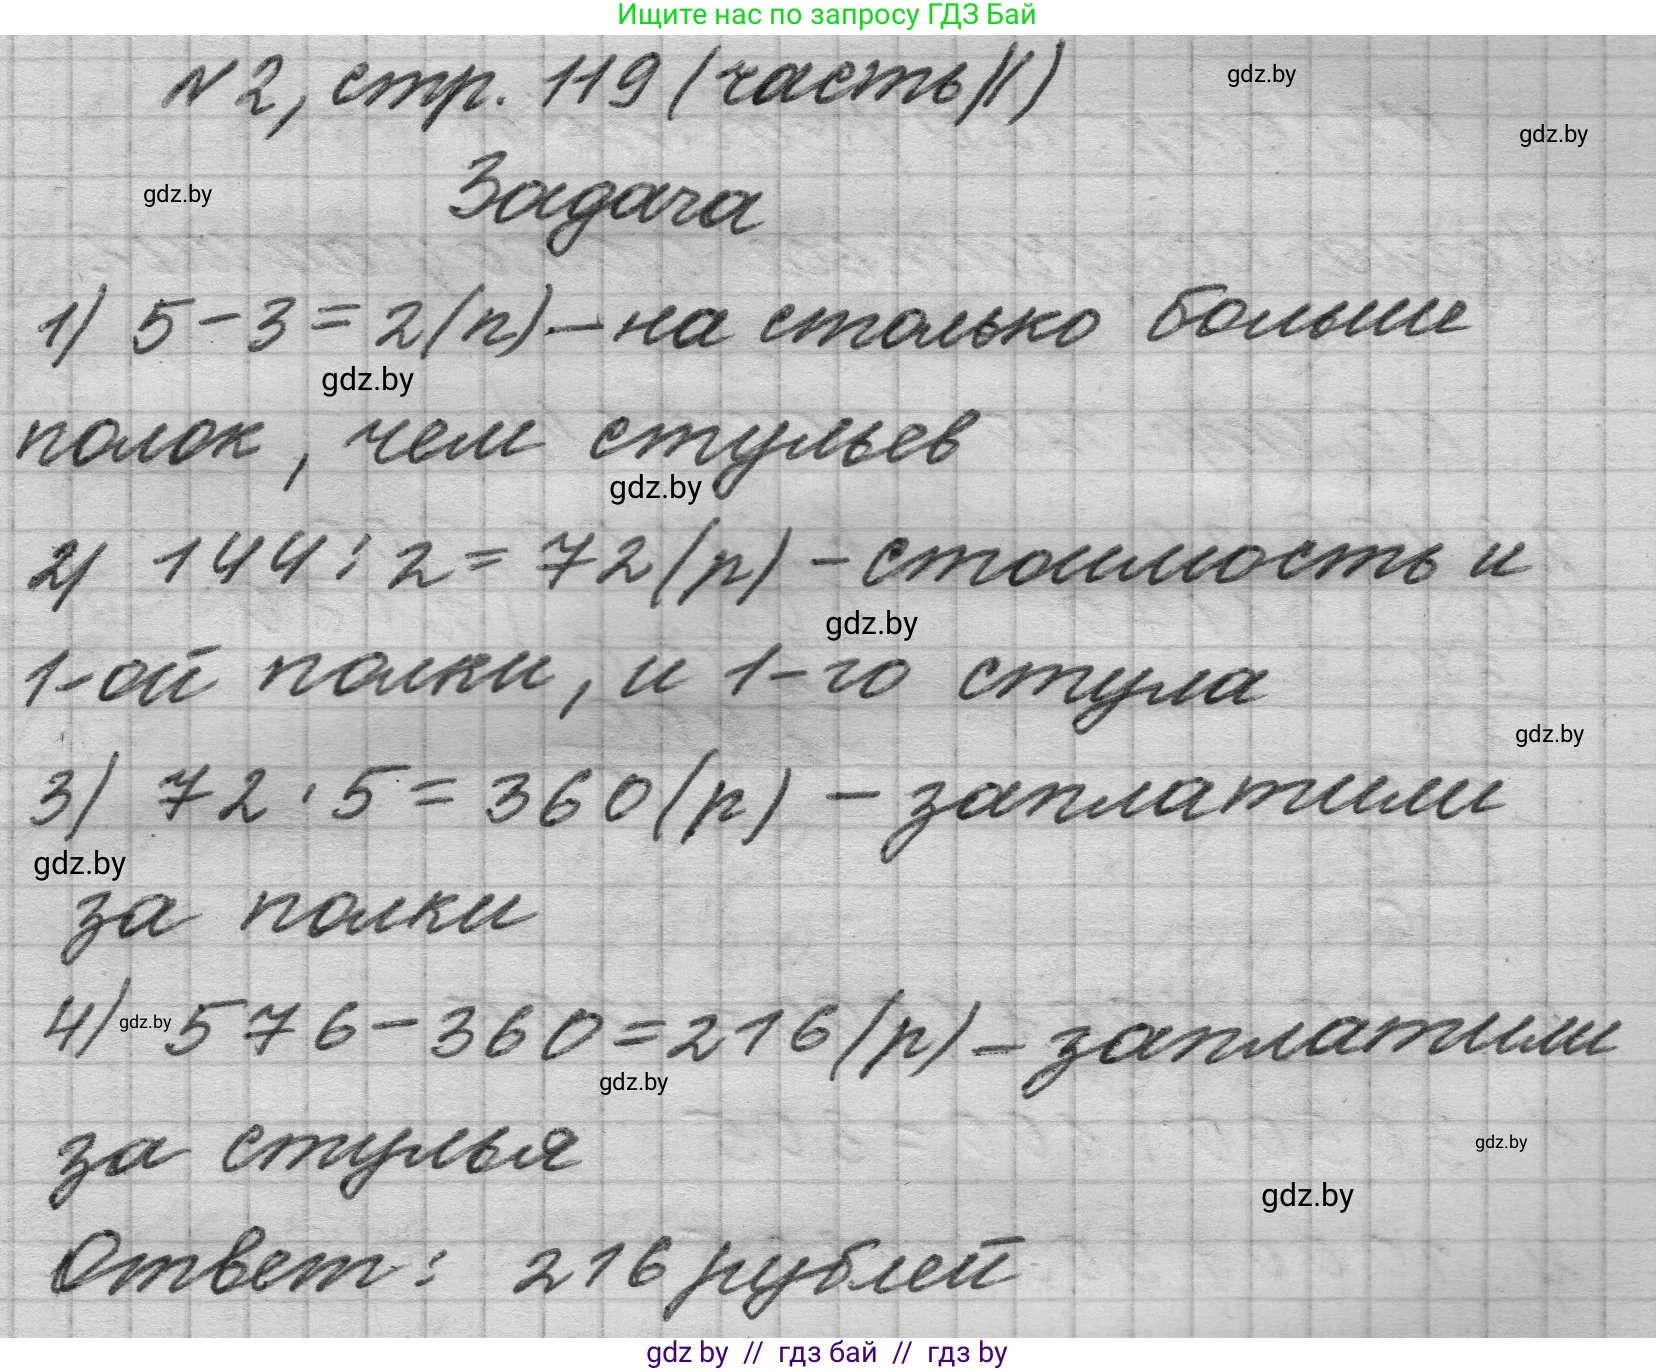 Ищите нас по запросу ГДЗ Бай
№2, стр. 119 (часть II)
gdz.by
gdz.by
gdz.by
Задача
1) 5-3=2(п)-на столько больше
gdz.by
полок, чем стульев
gdz.by
2) 144:2=72(р)-стоимость и
gdz.by
1-ой полки, и 1-го стула
gdz.by
3) 72·5=360(р)-заплатили
gdz.by
за полки
4) 576-360=216(р)-заплатили
gdz.by
gdz.by
за стулья
gdz.by
gdz.by
Ответ: 216 рублей
gdz by // гдз бай // гдз by